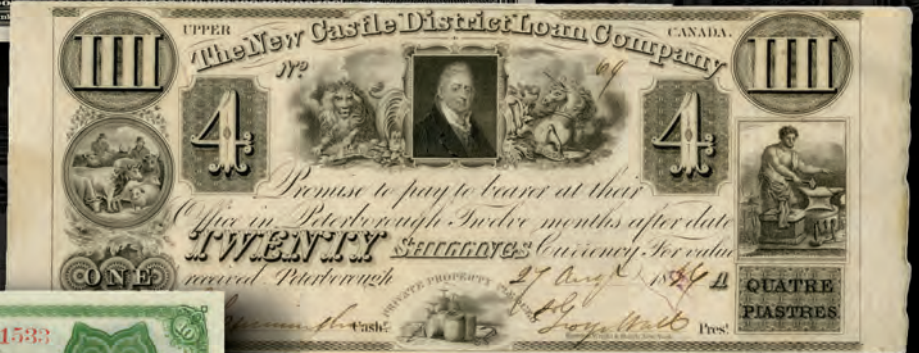 IIII UPPER CANADA. IIII
The New Castle District Loan Company
No 69
4 4
Promise to pay to bearer at their
Office in Peterborough Twelve months after date
TWENTY SHILLINGS Currency For value
received Peterborough 27 Augt 18
ONE
PRIVATE PROPERTY
QUATRE
PIASTRES
Cash.r Pres.t
1533
10